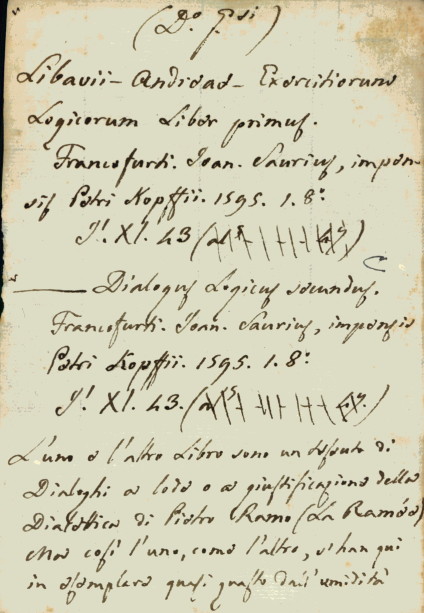 Libavii - Andreae - Exercitiorum
Logicorum Liber primus.
Francofurti. Ioan. Saurius, impen-
sis Petri Kopffii. 1595. 1. 8º
XI. 43
Dialogus Logicus secundus.
Francofurti. Ioan. Saurius, impensis
Petri Kopffii. 1595. 1. 8º
XI. 43.
L'uno e l'altro Libro sono un di
Dialoghi a lode o a giustificazione della
Dialettica di Pietro Ramo (La Ramée)
Ma così l'uno, come l'altro, s'han qui
in esemplare quasi guasto dall'umidità